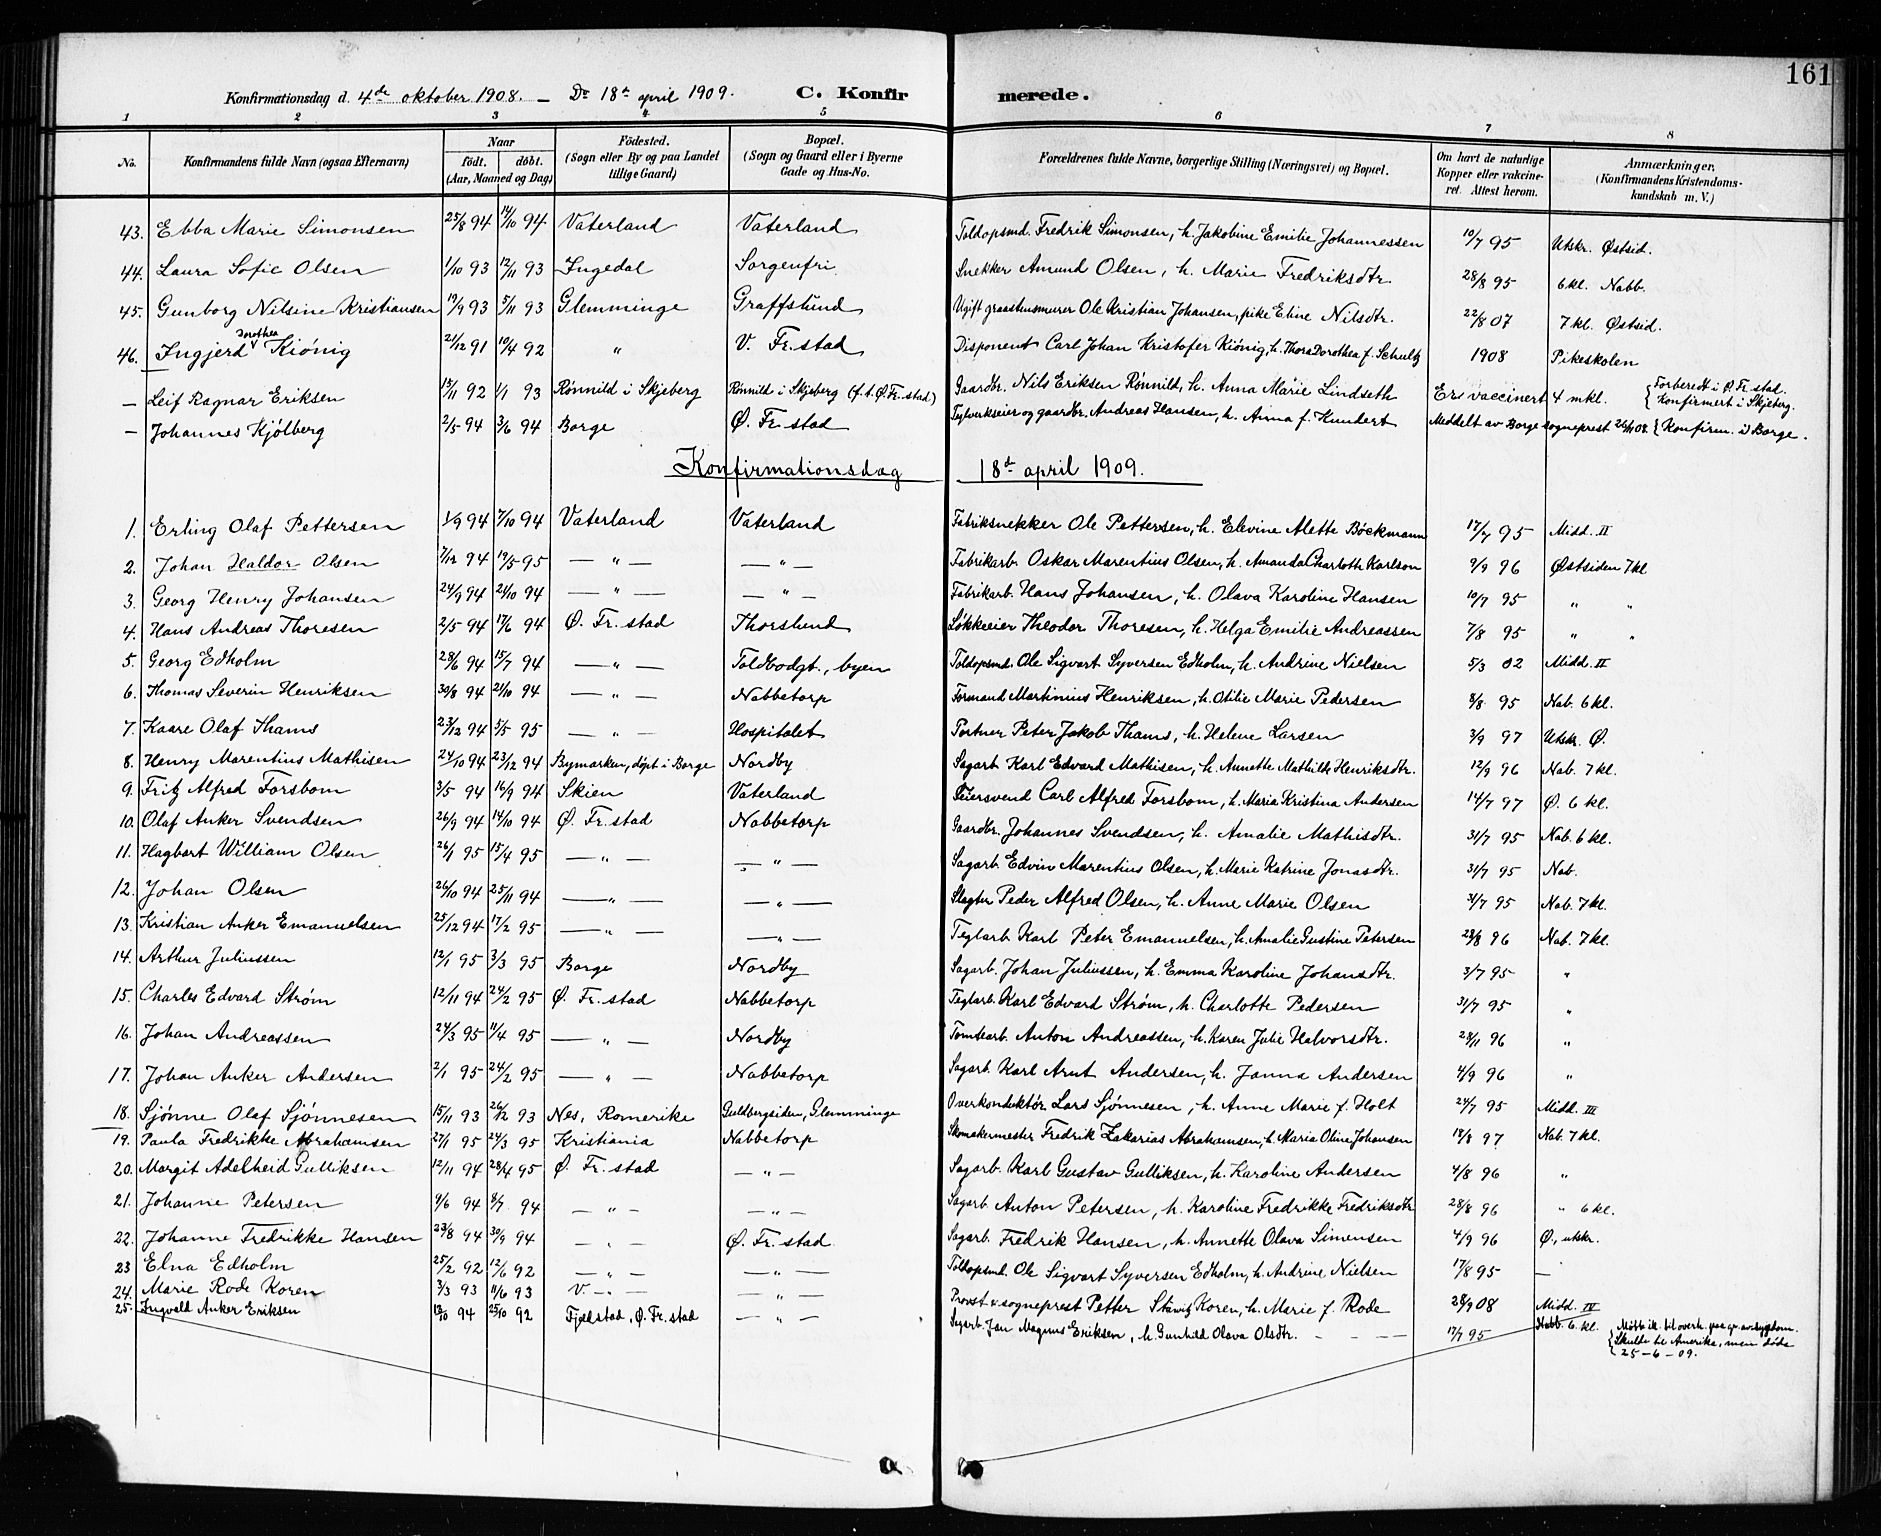 161
Konfirmationsdag d. 4de oktober 1908. — Do 18de april 1909. C. Konfirmerede.
1 2 3 4 5 6 7 8
No. Konfirmandens fulde Navn (ogsaa Efternavn) Naar født. døbt. (Aar, Maaned og Dag) Fødested. (Sogn eller By og paa Landet tillige Gaard) Bopæl. (Sogn og Gaard eller i Byerne Gade og Hus-No. Forældrenes fulde Navne, borgerlige Stilling (Næringsvei) og Bopæl. Om havt de naturlige Kopper eller vakcineret. Attest herom. Anmærkninger, (Konfirmandens Kristendomskundskab m. V.)
43. Ebba Marie Simonsen 25/8 94 14/10 94 Vaterland Vaterland Toldopsmd. Fredrik Simonsen, h. Jakobine Emilie Johannessen 10/7 95 Utskr. Østsid.
44. Laura Sofie Olsen 1/10 93 12/11 93 Ingedal Sorgenfri Snekker Amund Olsen, h. Marie Fredriksdtr. 28/8 95 6 kl. Nabb.
45. Gunborg Nilsine Kristiansen 19/9 93 5/11 93 Glemminge Graffslund Ugift graastensmurer Ole Kristian Johansen, pike Eline Nilsdtr. 22/8 07 7 kl. Østsid.
46. Ingjerd Dorothea Kiönig 21/12 91 10/4 92 " V. Fr.stad Disponent Carl Johan Kristofer Kiönig, h. Thora Dorothea f. Schultz 1908 Pikeskolen
— Leif Ragnar Eriksen 13/11 92 1/1 93 Rönnild i Skjeberg Rönnild i Skjeberg (f. t. Ø. Fr.stad) Gaardbr. Nils Eriksen Rönnild, h. Anna Marie Lindseth Er vaccinert 4 mkl. { Forberedt i Ø. Fr.stad. Konfirmert i Skjeberg.
— Johannes Kjölberg 2/5 94 3/6 94 Borge Ø. Fr.stad Teglverkseier og gaardbr. Andreas Hansen, h. Anna f. Hundert Meddelt av Borge sogneprest 26/11 08. { Konfirm. i Borge.
Konfirmationsdag 18de april 1909.
1. Erling Olaf Pettersen 1/9 94 7/10 94 Vaterland Vaterland Fabriksnekker Ole Pettersen, h. Elevine Alette Böckmann 17/7 95 Midd. II
2. Johan Haldor Olsen 7/12 94 19/5 95 — " — — " — Fabrikarb. Oskar Marentius Olsen, h. Amanda Charloth Karlson 9/9 96 Østsiden 7 kl
3. Georg Henry Johansen 24/9 94 21/10 94 — " — — " — Fabrikarb. Hans Johansen, h. Olava Karoline Hansen 10/7 95 " "
4. Hans Andreas Thoresen 2/5 94 17/6 94 Ø. Fr.stad Thorslund Løkkeeier Theodor Thoresen, h. Helga Emilie Andreassen 7/8 95 " "
5. Georg Edholm 28/6 94 15/7 94 — " — Toldbodgt., byen Toldopsmd. Ole Sigvart Syversen Edholm, h. Andrine Nielsen 5/3 02 Midd. II
6. Thomas Severin Henriksen 30/8 94 21/10 94 — " — Nabbetorp Formand Martinius Henriksen, h. Otilie Marie Pedersen 8/8 95 Nab. 6 kl.
7. Kaare Olaf Thams 23/12 94 5/5 95 — " — Hospitalet Portner Peter Jakob Thams, h. Helene Larsen 3/9 97 Utskr. Ø.
8. Henry Marentius Mathisen 24/10 94 23/12 94 Bymarken, döpt i Borge Nordby Sagarb. Karl Edvard Mathisen, h. Annette Mathilde Henriksdtr. 12/9 96 Nab. 7 kl.
9. Fritz Alfred Forsbom 3/5 94 16/9 94 Skien Vaterland Feiersvend Carl Alfred Forsbom, h. Maria Kristina Andersen 14/7 97 Ø. 6 kl.
10. Olaf Anker Svendsen 26/9 94 14/10 94 Ø. Fr.stad Nabbetorp Gaardbr. Johannes Svendsen, h. Amalie Mathisdtr. 31/7 95 Nab. 6 kl.
11. Hagbart William Olsen 26/1 95 15/4 95 — " — — " — Sagarb. Edvin Marentius Olsen, h. Marie Katrine Jonasdtr. 31/7 95 Nab.
12. Johan Olsen 26/10 94 25/11 94 — " — — " — Slagter Peder Alfred Olsen, h. Anne Marie Olsen 31/7 95 Nab. 7 kl.
13. Kristian Anker Emanuelsen 25/12 94 17/2 95 — " — — " — Teglarb. Karl Peter Emanuelsen, h. Amalie Gustine Petersen 28/8 96 Nab. 7 kl.
14. Arthur Juliussen 12/1 95 3/3 95 Borge Nordby Sagarb. Johan Juliussen, h. Emma Karoline Johansdtr. 3/7 95 "
15. Charles Edvard Strøm 12/11 94 24/2 95 Ø. Fr.stad Nabbetorp Teglarb. Karl Edvard Strøm, h. Charlotte Pedersen 31/7 95 "
16. Johan Andreassen 24/3 95 11/4 95 — " — Nordby Tomtearb. Anton Andreassen, h. Karen Julie Halvorsdtr. 23/11 96 "
17. Johan Anker Andersen 2/1 95 24/2 95 — " — Nabbetorp Sagarb. Karl Arnt Andersen, h. Janna Andersen 4/9 96 "
18. Sjönne Olaf Sjönnesen 15/11 93 26/12 93 Nes, Romerike Guldbergsiden, Glemminge Overkonduktör Lars Sjönnesen, h. Anne Marie f. Holt 24/7 95 Midd. III
19. Paula Fredrikke Abrahamsen 27/1 95 24/3 95 Kristiania Nabbetorp Skomakermester Fredrik Zakarias Abrahamsen, h. Maria Oline Johansen 18/8 97 Nab. 7 kl.
20. Margit Adelheid Gulliksen 12/11 94 28/4 95 Ø. Fr.stad — " — Sagarb. Karl Gustav Gulliksen, h. Karoline Andersen 4/8 96 "
21. Johanne Petersen 4/6 94 8/7 94 — " — — " — Sagarb. Anton Petersen, h. Karoline Fredrikke Fredriksdtr 28/8 96 " 6 kl.
22. Johanne Fredrikke Hansen 23/8 94 30/9 94 — " — Ø. Fr.stad Sagarb. Fredrik Hansen, h. Annette Olava Simensen 4/9 96 Ø., utskr.
23 Elna Edholm 25/2 92 12/6 92 — " — — " — Toldopsmd. Ole Sigvart Syversen Edholm, h. Andrine Nielsen 17/8 95 —
24. Marie Rode Koren 3/3 93 11/6 93 V. — " — — " — Provst & sogneprest Petter Koren, h. Marie f. Rode 28/9 08 Midd. IV
25. Ingvald Anker Eriksen 12/10 94 25/10 92 Fjeldstad, Ø. Fr.stad — " — Sagarb. Jan Magnus Eriksen, h. Gunhild Olava Olsdtr. — — — 17/7 95 Nabb. 6 kl. { Mötte ik. til overh. paa gr. av sygdom. Skulde til Amerika, men döde 25-6-09.